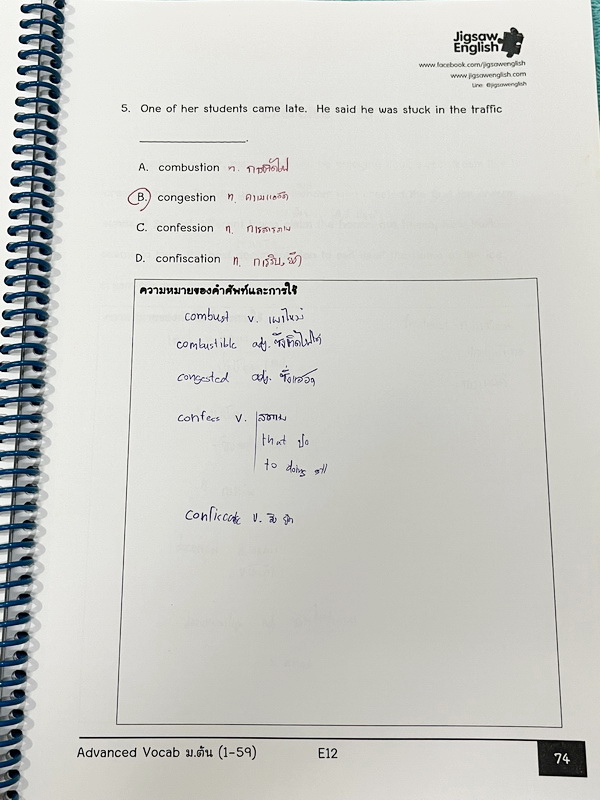 Jigsaw
English
www.facebook.com/jigsawenglish
www.jigsawenglish.com
Line: @jigsawenglish
5. One of her students came late. He said he was stuck in the traffic
____________________.
A. combustion n. การติดไฟ
B. congestion n. ความแออัด
C. confession n. การสารภาพ
D. confiscation n. การริบ, ยึด
ความหมายของคำศัพท์และการใช้
combust v. เผาไหม้
combustible adj. ซึ่งติดไฟได้
congested adj. ซึ่งแออัด
confess v. สารภาพ
that ปย
to doing sth
v. ริบ ยึด
Advanced Vocab ม.ต้น (1-59) E12 74